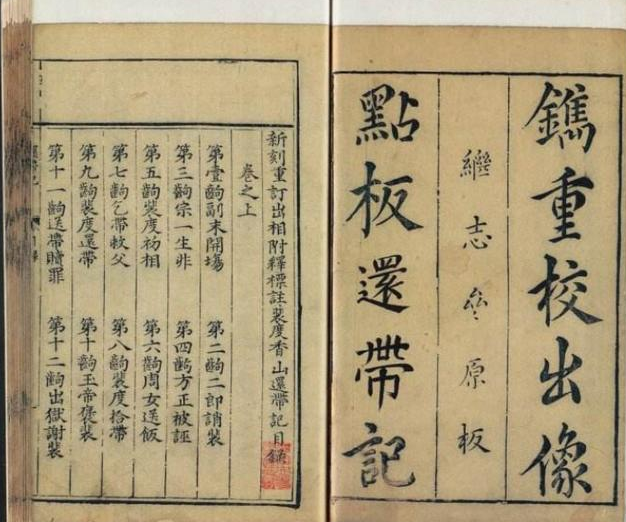 鐫重校出像
繼志亝原板
點板還帶記
新刻重訂出相附釋標註裴度香山還帶記目錄
卷之上
第壹齣副末開塲 第二齣二郎誚裴
第三齣宗一生非 第四齣方正被誣
第五齣裴度初相 第六齣周女送飯
第七齣乞帶救父 第八齣裴度拾帶
第九齣裴度還帶 第十齣玉帝褒裴
第十一齣送帶贖罪 第十二齣出獄謝裴